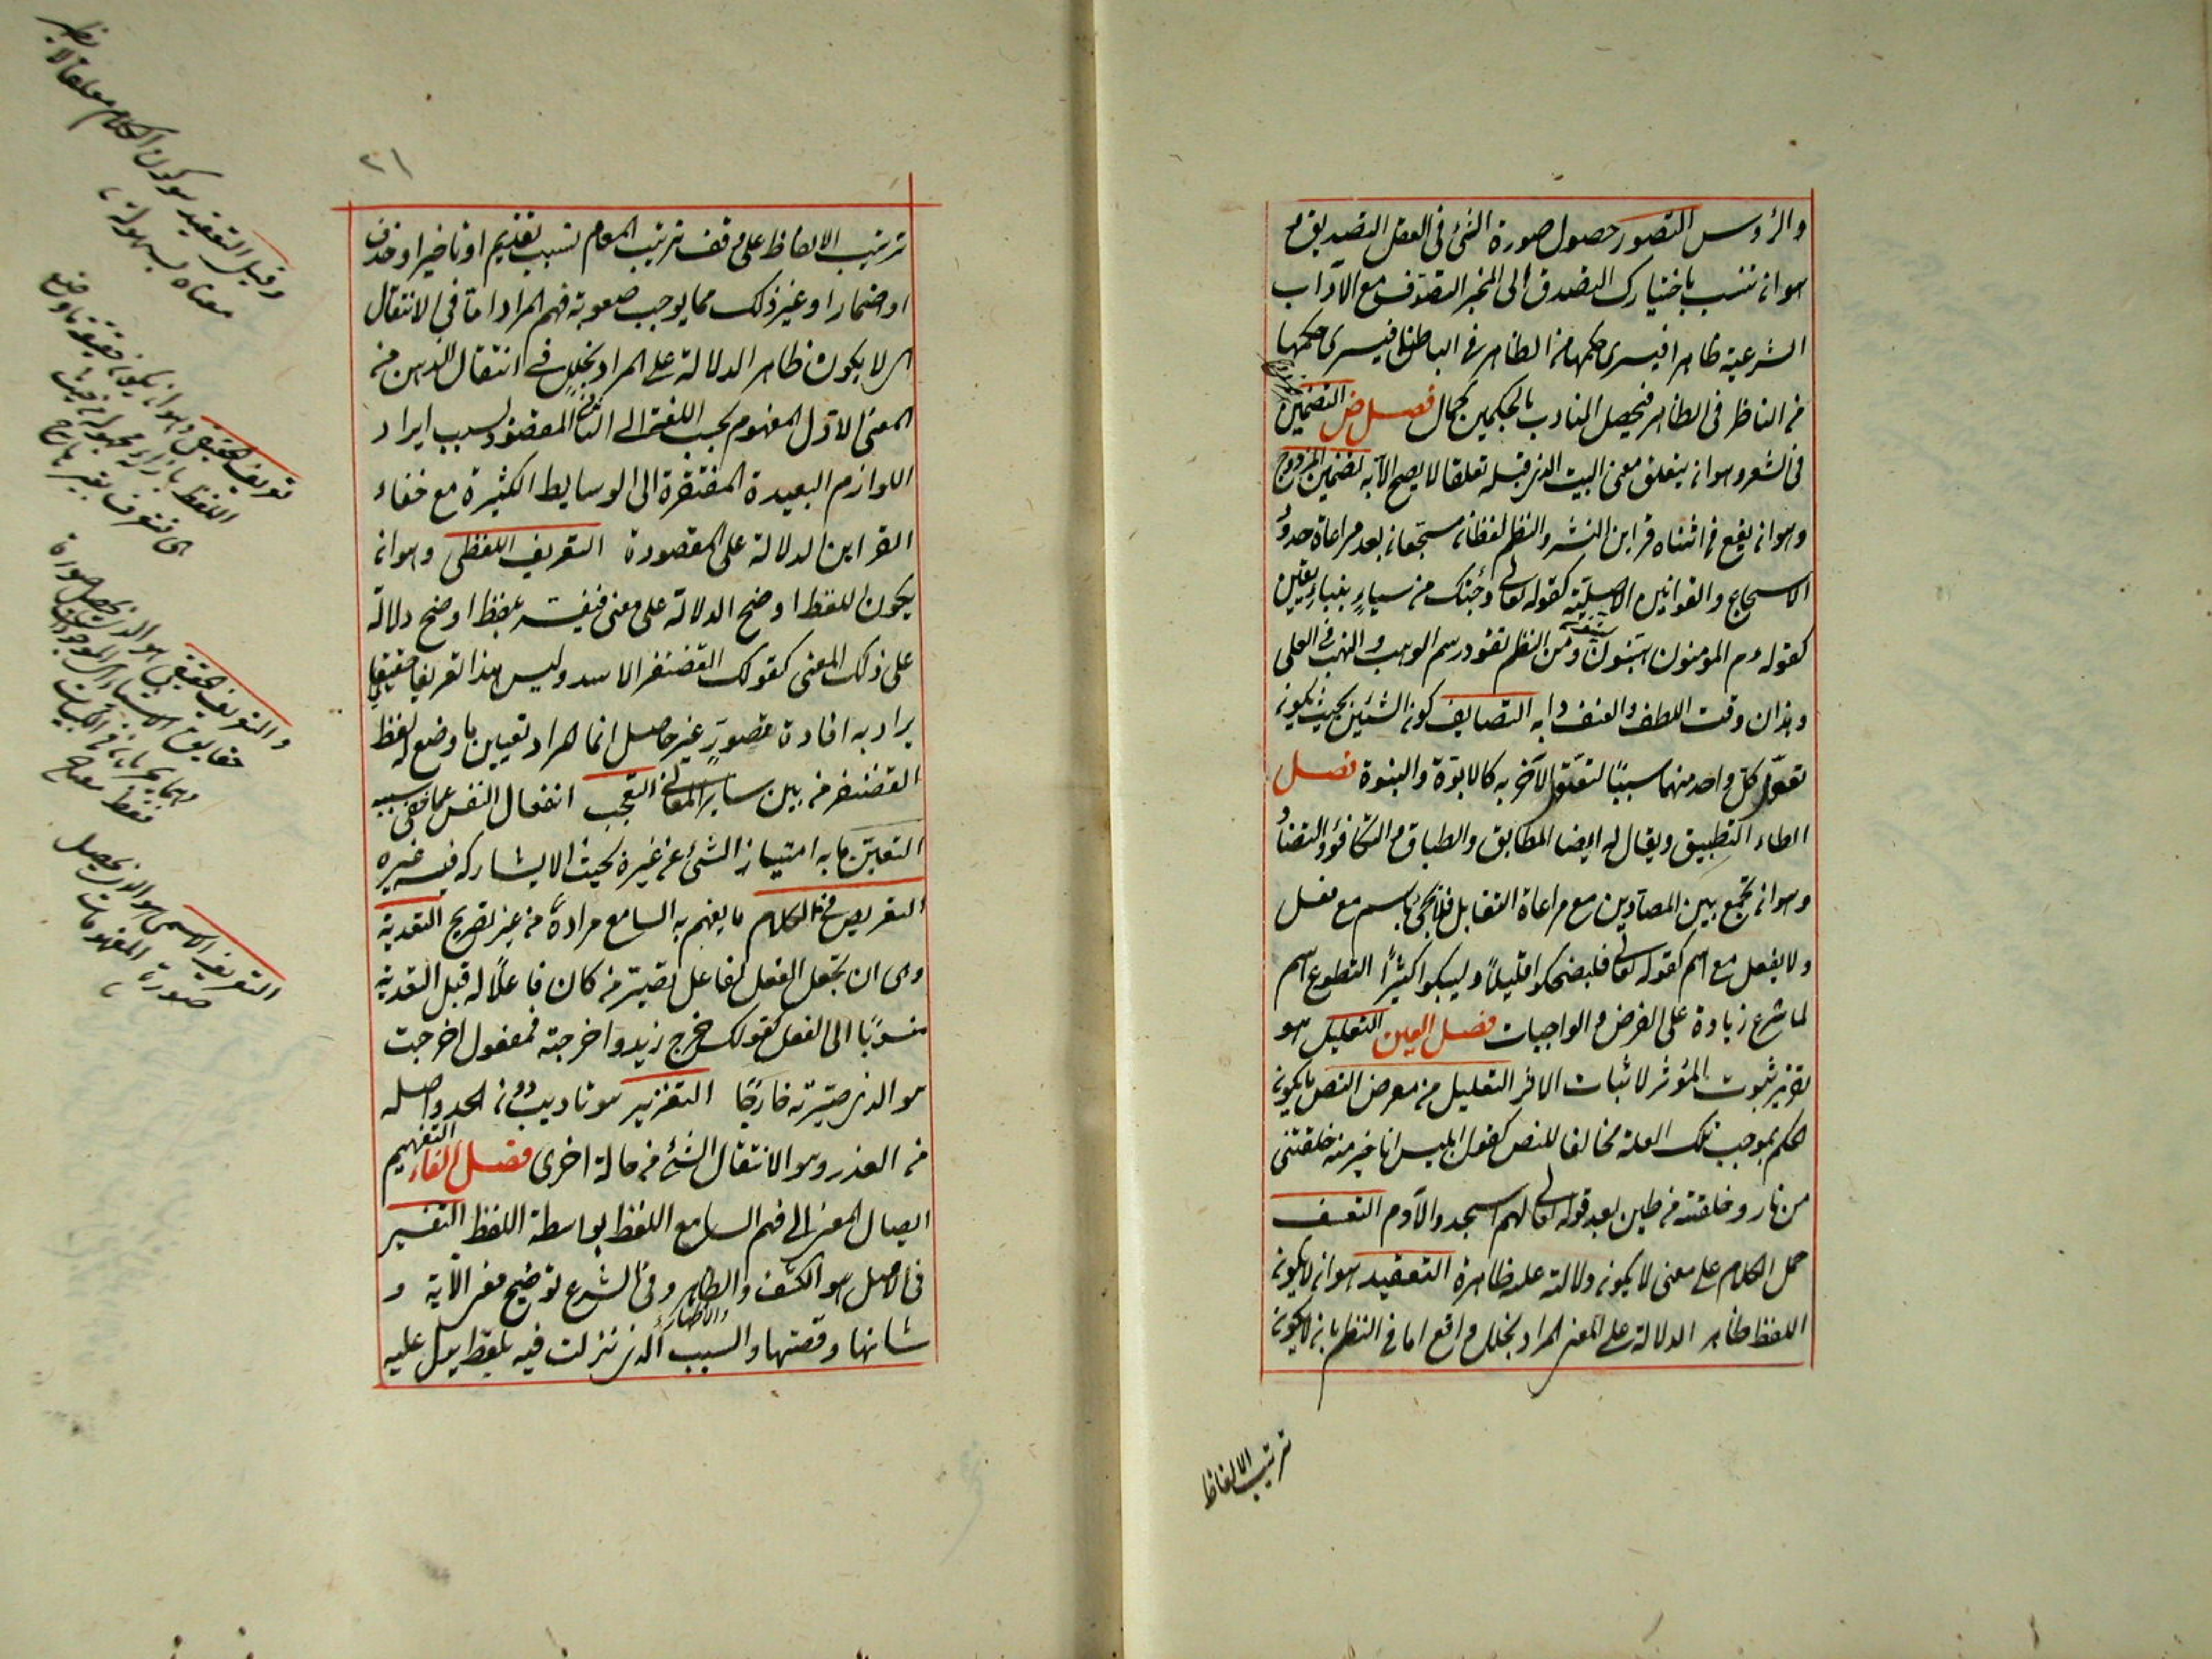 والرؤس التصور حصول صورة الشئ فى العقل التصديق هو
هو ان تنسب باختيارك الصدق الى المخبر التصوف مع الآداب
الشرعية ظاهرا فيسرى حكمها من الظاهر فى الباطن وباطنا فيسرى حكمها
من الباطن فى الظاهر فيحصل للمتأدب بالحكمين كمال فصل ض التضمين
فى الشعر وهو ان يتعلق معنى البيت الذى قبله تعلقا لا يصح الا به تضمين المزدوج
وهو ان يقع فى اثناء قراين النثر والنظم لفظان مسجعان بعد مراعاة حدود
الاسجاع والقوافى الاصلية كقوله تعالى وجئتك من سبإ بنبإ يقين
كقوله ءم المومنون هينون لينون ومن النظم تعود رسم الوهب والنهب فى العلى
وهذان وقت اللطف والعنف دابه التضايف كون الشيئين بحيث يكون
تعلق كل واحد منهما سببا لتعلق الآخر به كالابوة والبنوة فصل
الطاء التطبيق ويقال له ايضا المطابق والطباق والتكافؤ والتضاد
وهو ان تجمع بين المتضادين مع مراعاة التقابل فلا تجئ باسم مع فعل
ولا بفعل مع اسم كقوله تعالى فليضحكوا قليلا وليبكوا كثيرا التطوع اسم
لما شرع زيادة على الفرض والواجبات فصل العين التعليل هو
تقرير ثبوت المؤثر لاثبات الاثر التعليل فى معرض النص ما يكون
الحكم بموجب تلك العلة مخالفا للنص كقول ابليس انا خير منه خلقتنى
من نار وخلقته من طين بعد قوله تعالى لهم اسجدوا لآدم التعسف
حمل الكلام على معنى لا يكون دلالة عليه ظاهرة التعقيد هو ان لا يكون
اللفظ ظاهر الدلالة على المعنى المراد لخلل واقع اما فى النظم بان لا يكون
ترتيب الالفاظ
٢١
ترتيب الالفاظ على وفق ترتيب المعانى بسبب تقديم او تاخير او حذف
او اضمار او غير ذلك مما يوجب صعوبة فهم المراد اما فى الانتقال
اى لا يكون ظاهر الدلالة على المراد لخلل فى انتقال الذهن من
المعنى الاول المفهوم بحسب اللغة الى الثانى المقصود بسبب ايراد
اللوازم البعيدة المفتقرة الى الوسايط الكثيرة مع خفاء
القراين الدلالة على المقصودة التعريف اللفظى وهو ان
يكون اللفظ اوضح الدلالة على معنى فيفسر بلفظ اوضح دلالة
على ذلك المعنى كقولك الغضنفر الاسد وليس هذا تعريفا حقيقيا
يراد به افادة تصور غير حاصل انما المراد تعيين ما وضع له لفظ
الغضنفر من بين ساير المعانى التعجب انفعال النفس عما خفى سببه
التعين ما به امتياز الشئ عن غيره بحيث لا يشاركه فيه غيره
التعريض فى الكلام ما يفهم به السامع مراده من غير تصريح التعدية
وهى ان تجعل الفعل لفاعل تصير من كان فاعلا له قبل التعدية
منسوبا الى الفعل كقولك خرج زيد واخرجته فمفعول اخرجت
هو الذى صيرته خارجا التعزير هو تاديب دون الحد واصله
من العذر وهو الانتقال الشئ من حالة اخرى فصل الفاء التفهيم
ايصال المعنى الى فهم السامع اللفظ بواسطة اللفظ التفسير
فى الاصل هو الكشف والظاهر والاظهار وفى الشرع توضيح معنى الآية و
شانها وقصتها والسبب الذى نزلت فيه بلفظ يدل عليه
وقيل التعقيد هو كون الكلام مغلقا لا يظهر
معناه بسهولة
تعريف الحقيقى وهو ان يكون حقيقة ما وضع
اللفظ بازائه
والتعريف الحقيقى هو الذى يحصل صورة
حقايق الاشياء الموجودة
فقط
التعريف الاسمى هو الذى يحصل
صورة المفهومات